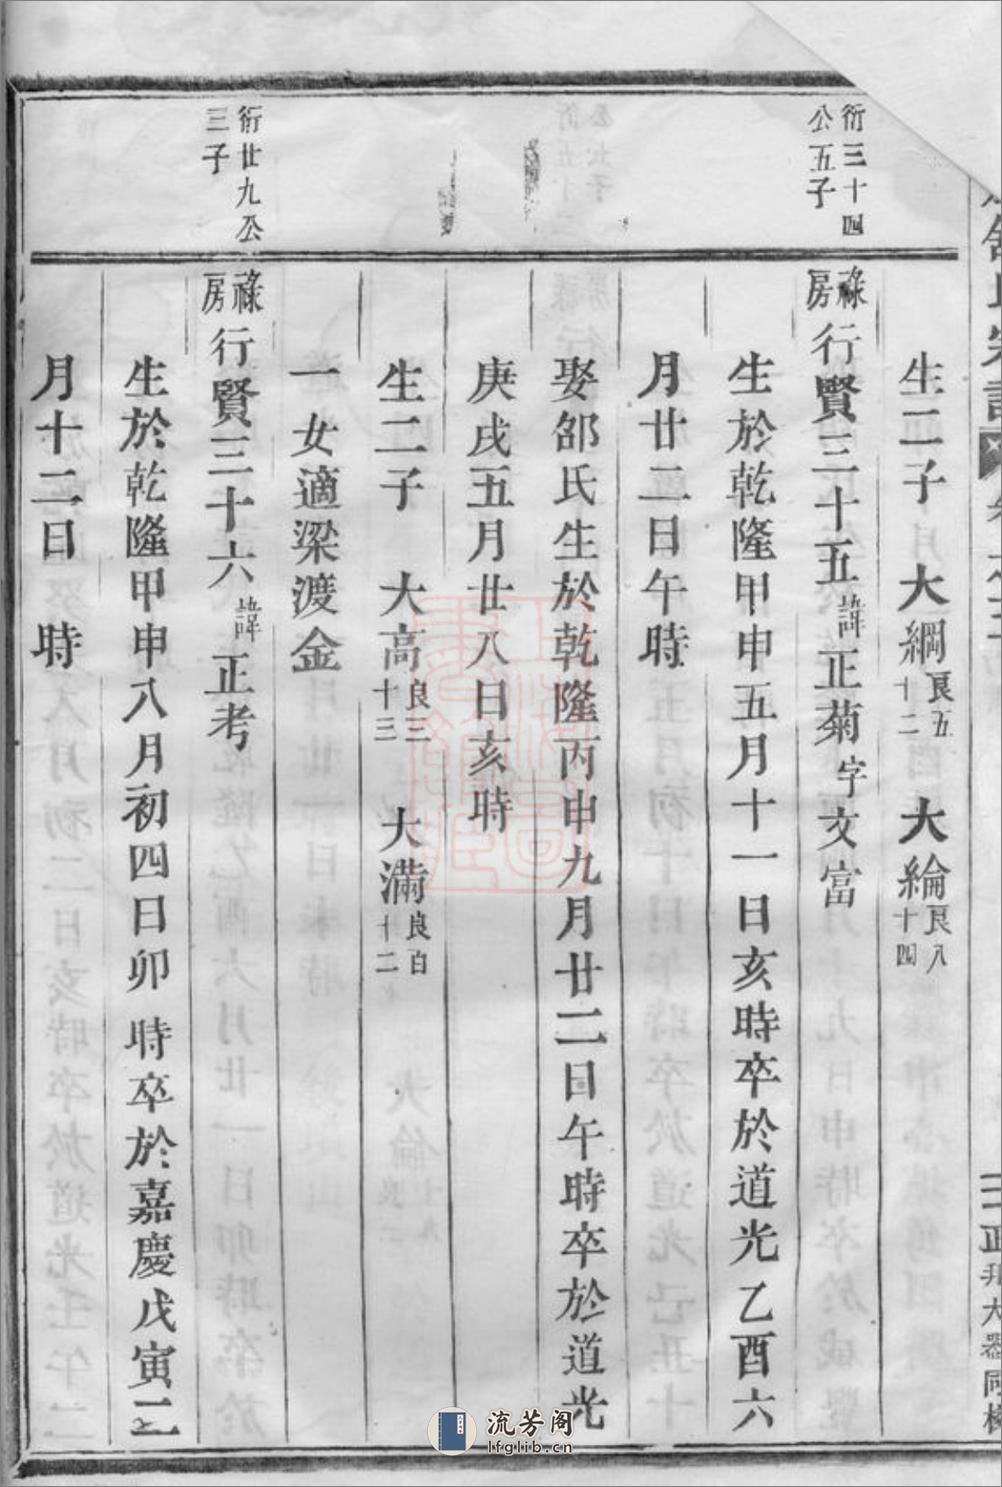 生二子　大綱良五十二　大綸良八十四
衍三十四公五子
祿房行賢三十五諱正菊字文富
生於乾隆甲申五月十一日亥時卒於道光乙酉六
月廿二日午時
娶邵氏生於乾隆丙申九月廿二日午時卒於道光
庚戌五月廿八日亥時
生二子　大高良三十三　大滿良百十二
一女適梁渡金
衍廿九公三子
祿房行賢三十六諱正考
生於乾隆甲申八月初四日卯時卒於嘉慶戊寅二
月十二日　時
流芳阁
lfglib.cn